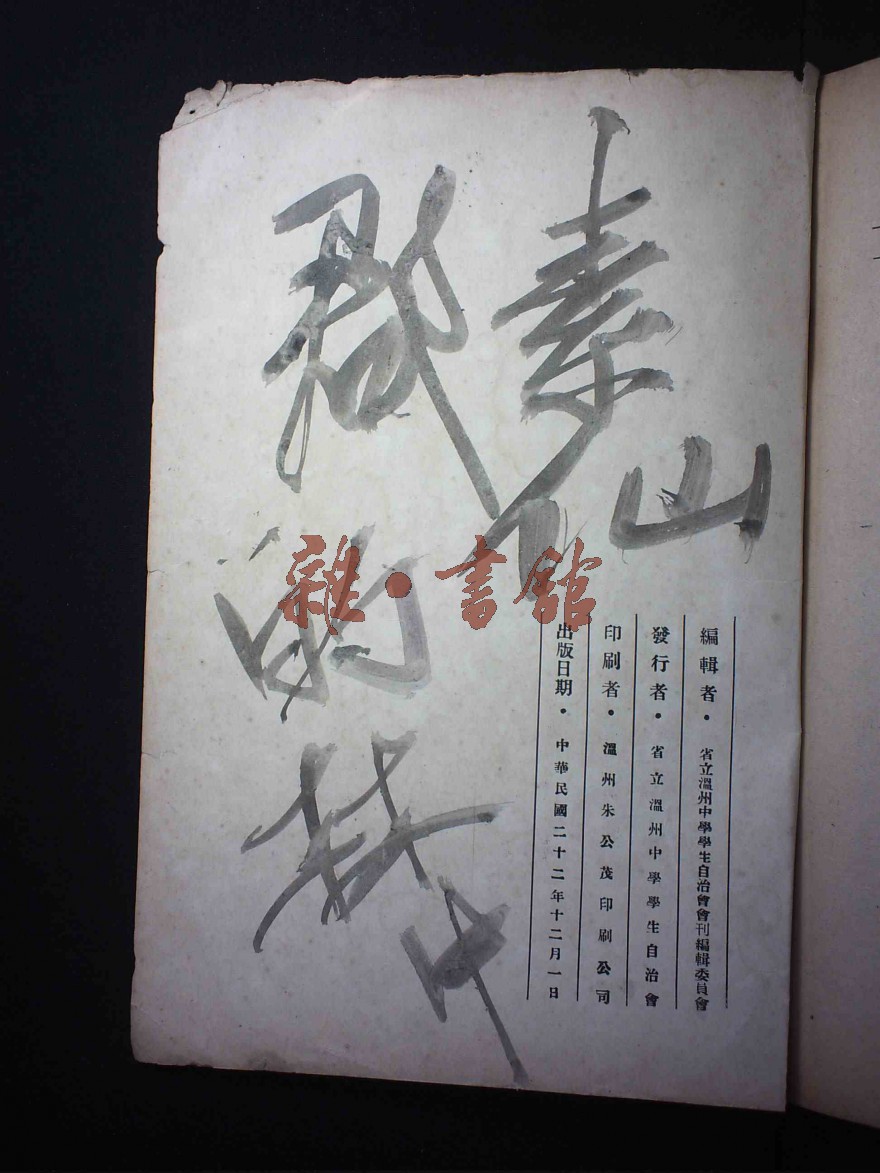 編輯者・省立溫州中學學生自治會會刊編輯委員會
發行者・省立溫州中學學生自治會
印刷者・溫州朱公茂印刷公司
出版日期・中華民國二十二年十二月一日
山
的林中
雜・書館